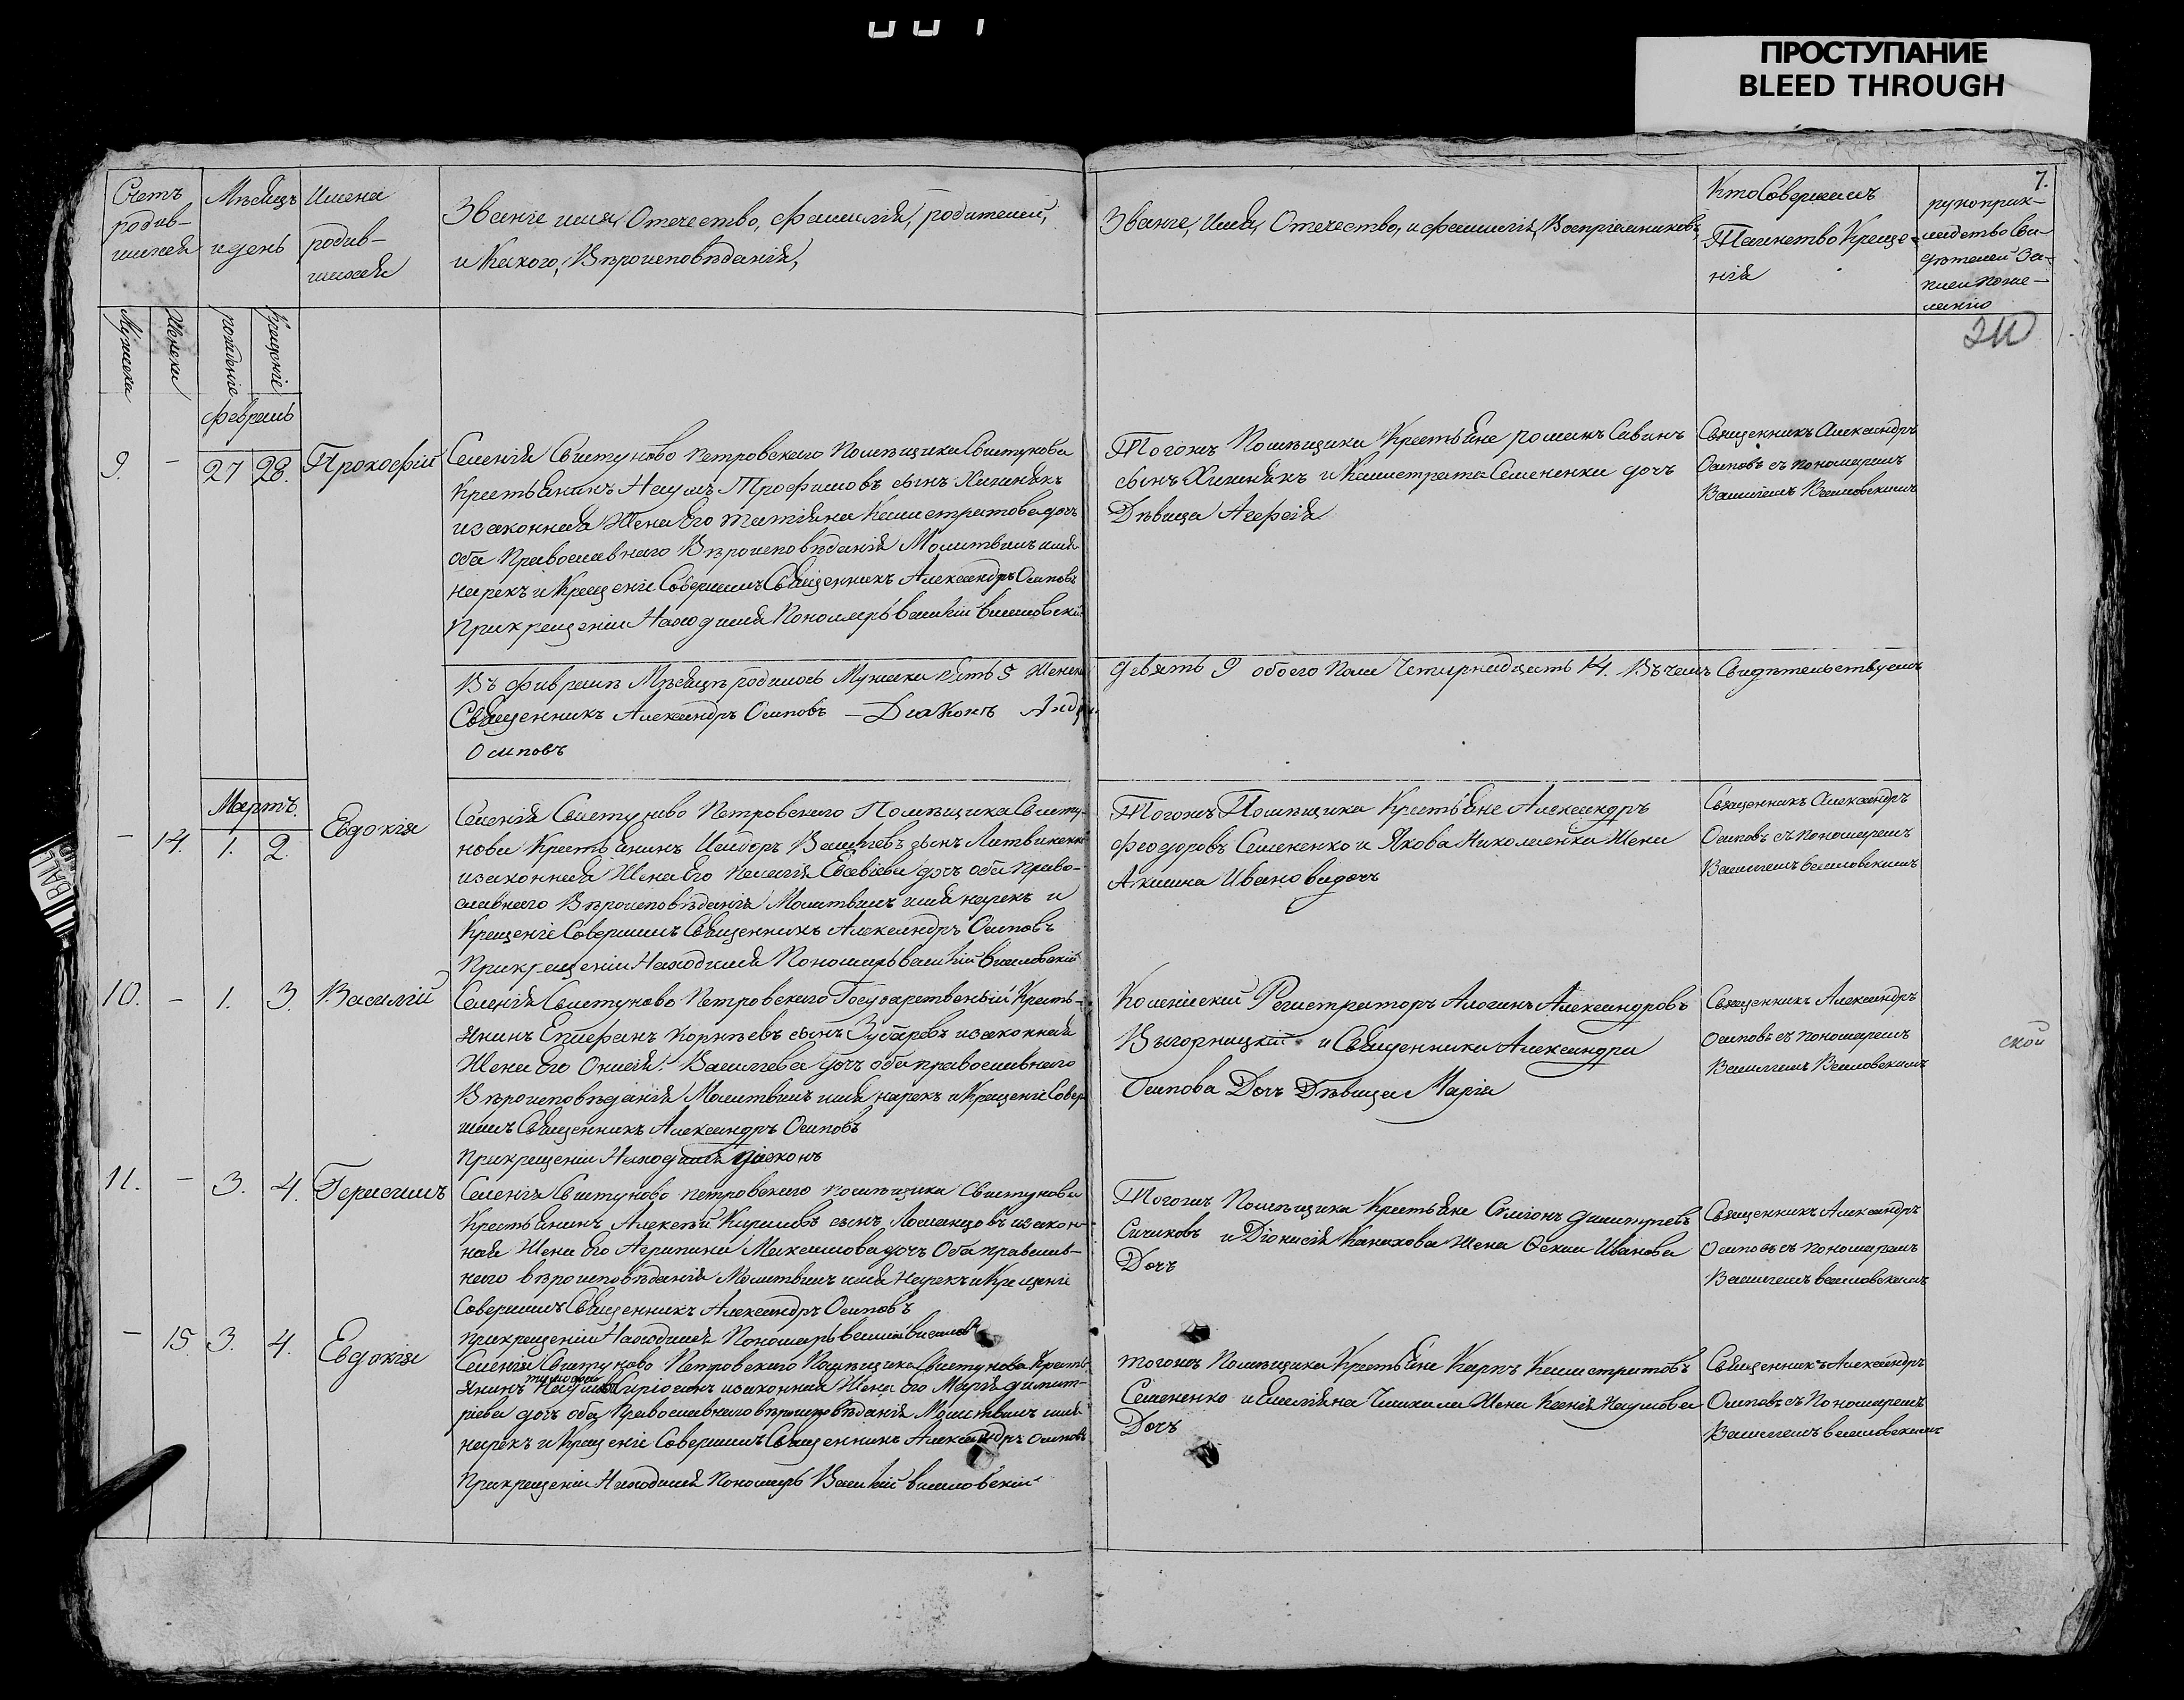 ПРОСТУПАНИЕ
BLEED THROUGH
7.
Счетъ родив-шихся
Мѣсяцъ и день
Имена родив-шихся
Званіе имя, Отечество, фамилія, родителей,
и Какого, Вѣроисповѣданія,
Званіе, Имя, Отечество, и фамилія, Воспріемниковъ,
Кто Совершалъ
Таинство Креще-
нія
рукоприк-
ладство Сви-
дѣтелей За-
писи поже-
ланію
Мужеска
Женска
рожденіе
Крещеніе
февраль
9. - 27 28. Прокофій
Селенія Свистуново Петровского Помѣщика Свистунова
Крестьянинъ Наумъ Трофимовъ сынъ
изаконная Жена Его Татіяна Калистратова дочь
оба Православнаго Вѣроисповѣданія Молитвилъ имя
нарекъ и Крещеніе Совершилъ Священникъ Александръ Осиповъ
Прикрещеніи Находился Пономарь
Тогожъ Помѣщика Крестьяне романъ Савинъ
сынъ и Калистрата Семененки дочь
Дѣвица
Священникъ Александръ
Осиповъ съ пономаремъ
Василіемъ
Въ февралѣ Мѣсяцѣ родилось Мужска пять 5 Женска
девять 9 обоего Пола Четырнадцать 14. Въ чемъ Свидѣтельствуемъ
Священникъ Александръ Осиповъ — Діаконъ
Осиповъ
Мартъ.
- 14. 1. 2. Евдокія
Селенія Свистуново Петровского Помѣщика Свисту-
нова Крестьянинъ Исидоръ сынъ
изаконная Жена Его Пелагія Евсевіева дочь оба Право-
славнаго Вѣроисповѣданія Молитвилъ имя нарекъ и
Крещеніе Совершилъ Священникъ Александръ Осиповъ
Прикрещеніи Находился Пономарь
Тогожъ Помѣщика Крестьяне Александръ
Феодоровъ Семененко и Якова Николаенка Жена
Акилина Иванова дочь
Священникъ Александръ
Осиповъ съ пономаремъ
Василіемъ
10. - 1. 3. Василій
Селенія Свистуново Петровского Государственый Кресть-
янинъ Епифанъ Корнѣевъ сынъ Зубаревъ изаконная
Жена Его Василіева дочь оба православнаго
Вѣроисповѣданія Молитвилъ имя нарекъ и Крещеніе Совер
шилъ Священникъ Александръ Осиповъ
Прикрещеніи Находился діяконъ
Колежскій Регистраторъ Александровъ
Выгорницкій и Священника Александра
Осипова Дочь Дѣвица Марія
Священникъ Александръ
Осиповъ съ пономаремъ
Василіемъ
ской
11. - 3. 4. Герасимъ
Селенія Свистуново петровского помѣщика Свистунова
Крестьянинъ Алексѣй Кириловъ сынъ изакон-
ная Жена Его Агрипина Максимова дочь Оба православ-
наго вѣроисповѣданія Молитвилъ имя Нарекъ и Крещеніе
Совершилъ Священникъ Александръ Осиповъ
прикрещеніи Находился Пономарь
Тогожъ Помѣщика Крестьяне Симіонъ Димитріевъ
и Діонисія Жена Иванова
Дочь
Священникъ Александръ
Осиповъ съ Пономаремъ
Василіемъ
- 15. 3. 4. Евдокія
Селенія Свистуново Петровского Помѣщика Свистунова Кресть-
янинъ изаконная Жена Его Марія димит-
ріева дочь оба Православнаго вѣроисповѣданія Молитвилъ имя
нарекъ и Крещеніе Совершилъ Священникъ Александръ Осиповъ
Прикрещеніи Находился Пономарь
тогожъ Помѣщика Крестьяне Карпъ Калистратовъ
Семененко и Емеліяна Жена Ксенія Наумова
Дочь
Священникъ Александръ
Осиповъ съ Пономаремъ
Василіемъ